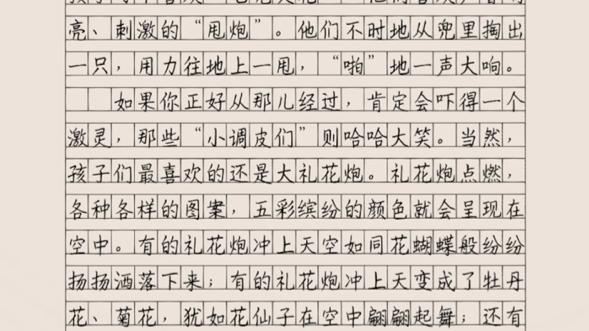 亮、刺激的“甩炮”。他们不时地从兜里掏出
一只，用力往地上一甩，“啪”地一声大响。
如果你正好从那儿经过，肯定会吓得一个
激灵，那些“小调皮们”则哈哈大笑。当然，
孩子们最喜欢的还是大礼花炮。礼花炮点燃，
各种各样的图案，五彩缤纷的颜色就会呈现在
空中。有的礼花炮冲上天空如同花蝴蝶般纷纷
扬扬洒落下来；有的礼花炮冲上天变成了牡丹
花、菊花，犹如花仙子在空中翩翩起舞；还有